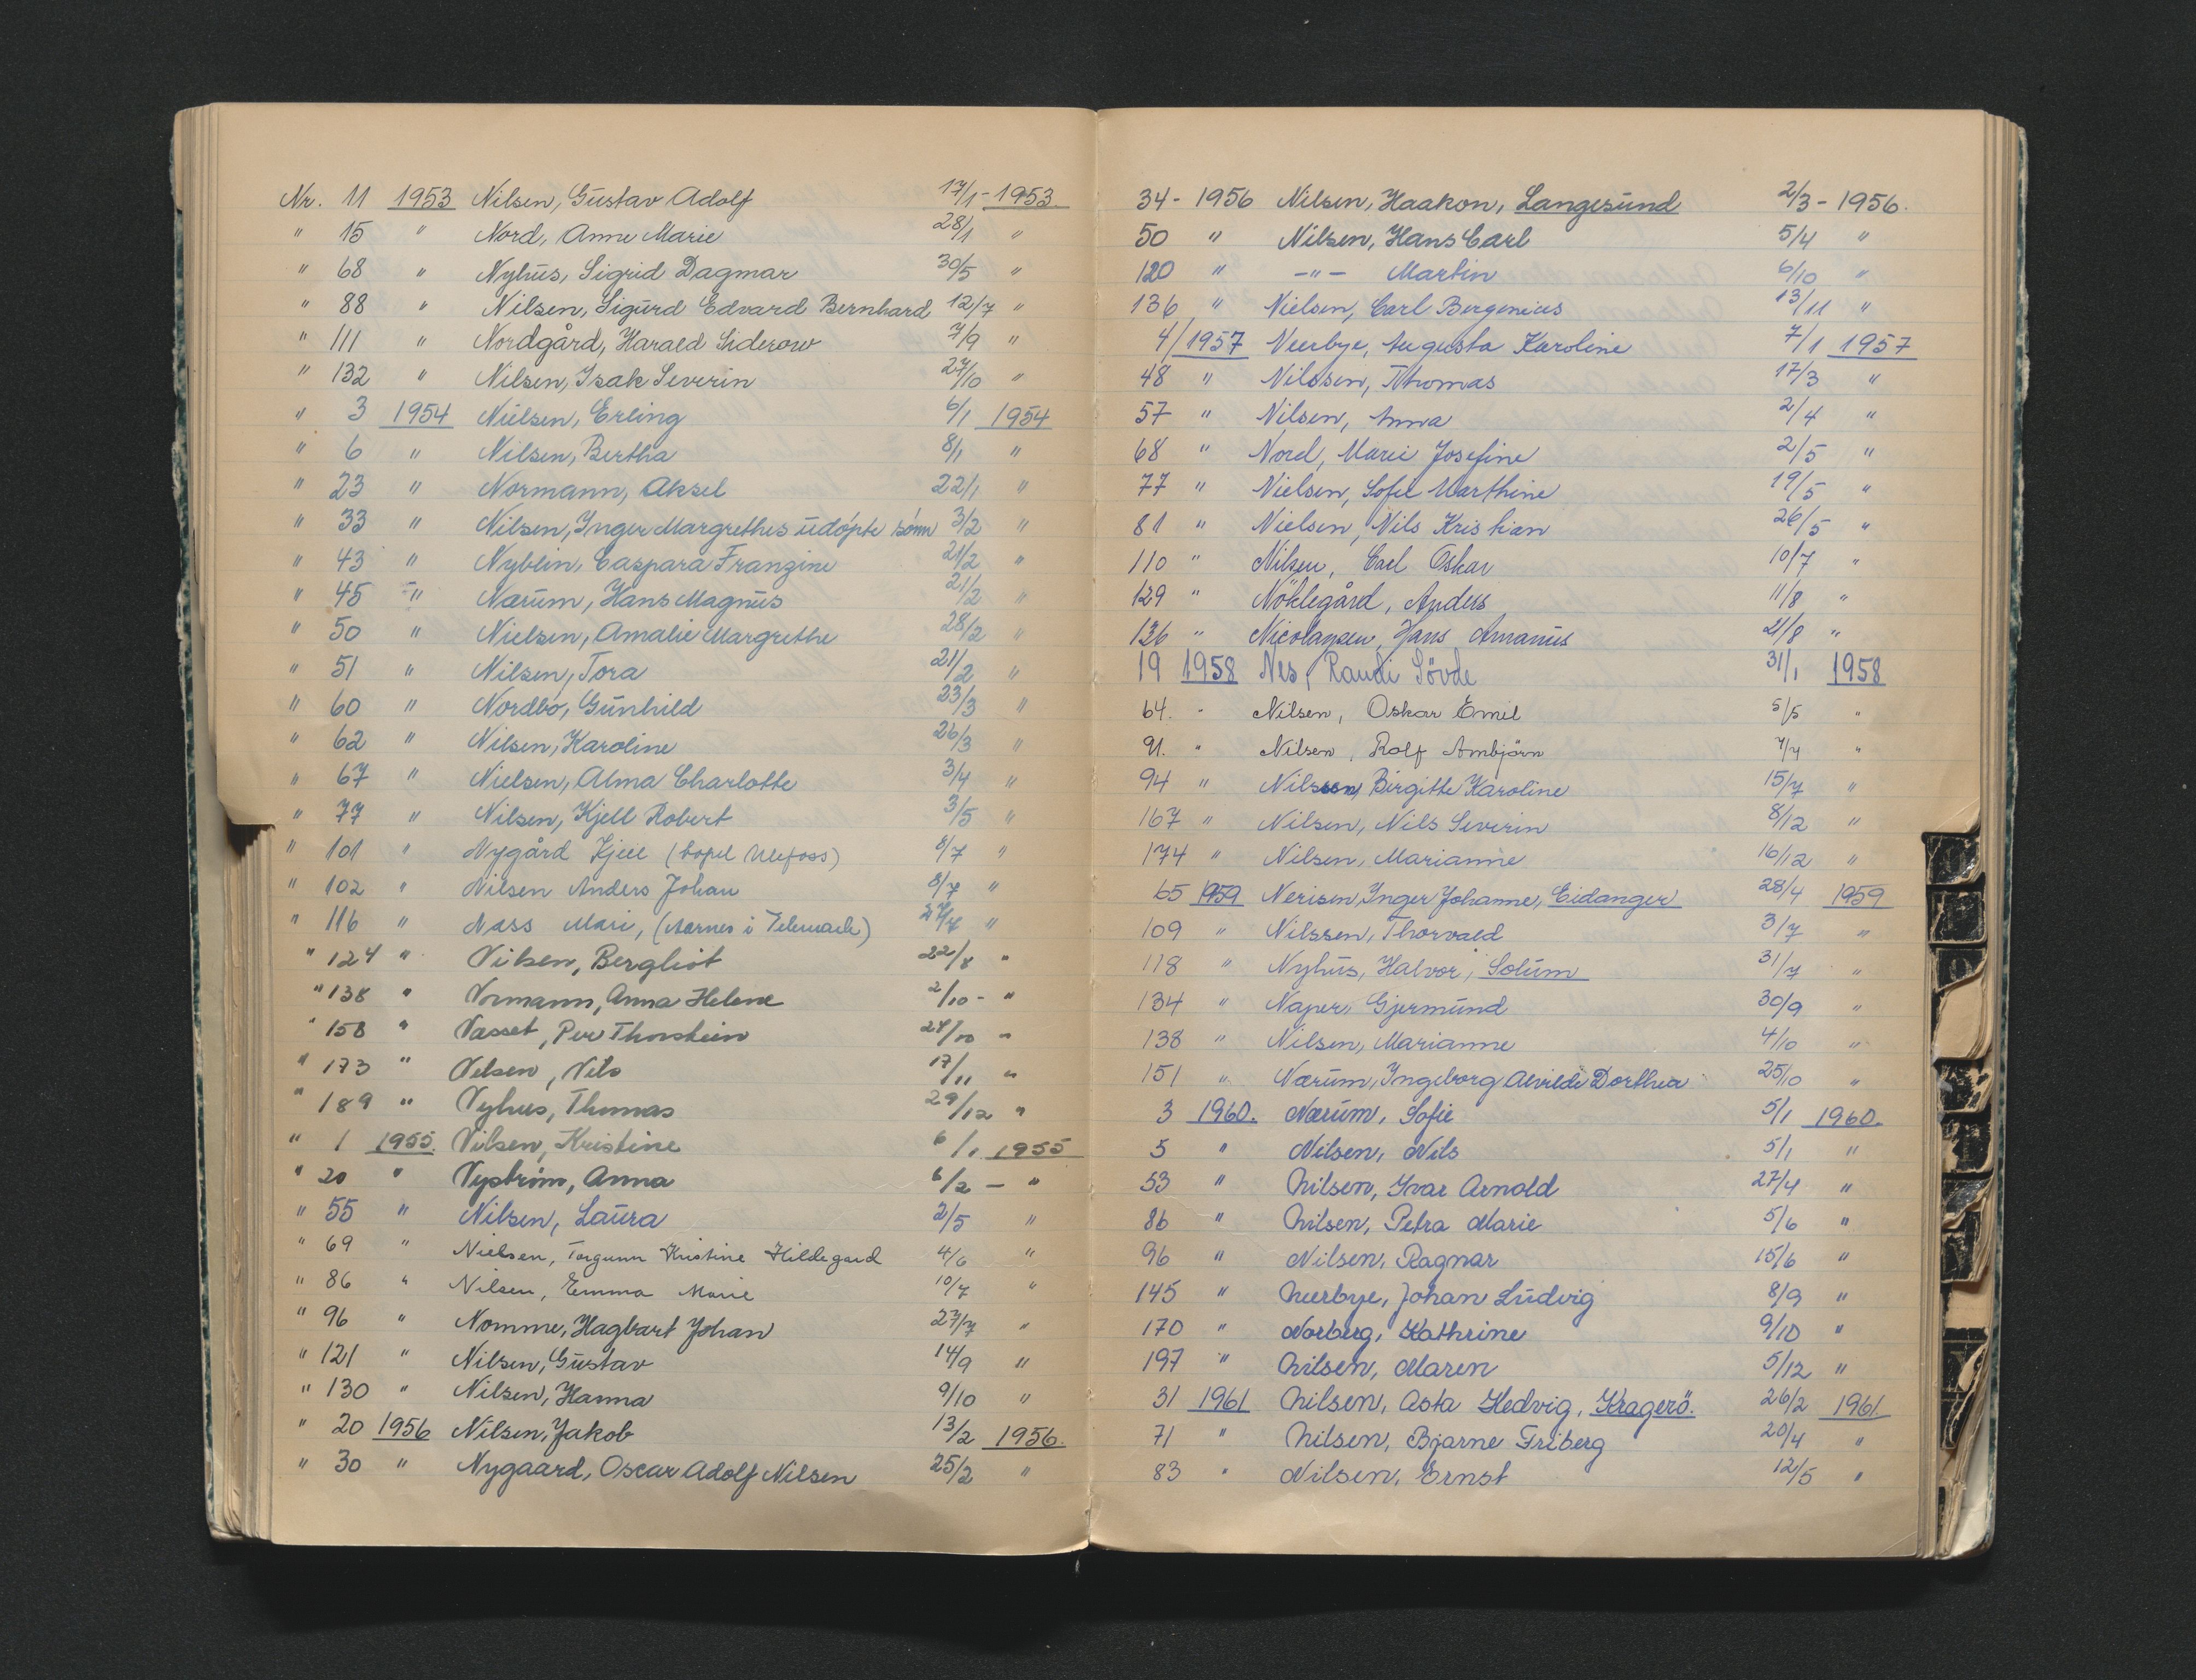 Nr. 11 1953 Nilsen, Gustav Adolf 17/1 - 1953
" 15 " Nord, Anne Marie 28/1 "
" 68 " Nyhus, Sigrid Dagmar 30/5 "
" 88 " Nilsen, Sigurd Edvard Bernhard 12/7 "
" 111 " Nordgård, Harald Siderow 7/9 "
" 132 " Nilsen, Isak Severin 27/10 "
" 3 1954 Nielsen, Erling 6/1 1954
" 6 " Nilsen, Bertha 8/1 "
" 23 " Normann, Aksel 22/1 "
" 33 " Nilsen, Inger Margrethes udöpte sönn 3/2 "
" 43 " Nyblin, Caspara Franzine 21/2 "
" 45 " Nærum, Hans Magnus 21/2 "
" 50 " Nielsen, Amalie Margrethe 28/2 "
" 51 " Nilsen, Tora 21/2 "
" 60 " Nordbö, Gunhild 23/3 "
" 62 " Nilsen, Karoline 26/3 "
" 67 " Nielsen, Alma Charlotte 3/4 "
" 77 " Nilsen, Kjell Robert 3/5 "
" 101 " Nygård Kjell (bopel Ulefoss) 8/7 "
" 102 " Nilsen Anders Johan 8/7 "
" 116 " Næss Mari, 27/7 "
" 124 " Nilsen, Bergliot 22/8 "
" 138 " Normann, Anna Helene 2/10 - "
" 158 " Nasset, Per Thorstein "
" 173 " Nilsen, Nils 17/11 "
" 189 " Nyhus, Thomas 29/12 "
" 1 1955. Nilsen, Kristine 6/1 1955
" 20 " Nyström, Anna 6/2 - "
" 55 " Nilsen, Laura 2/5 "
" 69 " Nielsen, Torgunn Kristine Hildegard 4/6 "
" 86 " Nilsen, Emma Marie 10/7 "
" 96 " Nomme, Hagbart Johan 27/7 "
" 121 " Nilsen, Gustav 14/9 "
" 130 " Nilsen, Hanna 9/10 "
" 20 1956 Nilsen, Jakob 13/2 1956.
" 30 " Nygaard, Oscar Adolf Nilsen 25/2 "
34 - 1956 Nilsen, Haakon, Langesund 2/3 - 1956.
50 " Nilsen, Hans Carl 5/4 "
120 " -"- Martin 6/10 "
136 " Nielsen, Carl Bergenius 13/11 "
4/1957 Neerbye, Augusta Karoline 7/1 1957
48 " Nilssen, Thomas 17/3 "
57 " Nilsen, Anna 2/4 "
68 " Nord, Marie Josefine 2/5 "
77 " Nielsen, Sofie Marthine 19/5 "
81 " Nielsen, Nils Kristian 26/5 "
110 " Nilsen, Carl Oskar 10/7 "
129 " Nöklegård, Anders 11/8 "
136 " Nicolaysen, Hans Amanus 21/8 "
19 1958 Nes, Randi Sövde 31/1 1958
64. " Nilsen, Oskar Emil 5/5 "
91. " Nilsen, Rolf Arnbjörn 7/7 "
94 " Nilssen, Birgitte Karoline 15/7 "
167 " Nilsen, Nils Severin 8/12 "
174 " Nilsen, Marianne 16/12 "
65 1959 Nerisen, Inger Johanne, Eidanger 28/4 1959
109 " Nilssen, Thorvald 3/7 "
118 " Nyhus, Halvor, Solum 31/7 "
134 " Naper, Gjermund 30/9 "
138 " Nilsen, Marianne 4/10 "
151 " Nærum, Ingeborg Alvilde Dorthea 25/10 "
3 1960. Nærum, Sofie 5/1 1960.
5 " Nilsen, Nils 5/1 "
53 " Nilsen, Ivar Arnold 27/4 "
86 " Nilsen, Petra Marie 5/6 "
96 " Nilsen, Ragnar 15/6 "
145 " Neerbye, Johan Ludvig 8/9 "
170 " Norberg, Kathrine 9/10 "
197 " Nilsen, Maren 5/12 "
31 1961 Nilsen, Asta Hedvig, Kragerö. 26/2 1961.
71 " Nilsen, Bjarne Friberg 20/4 "
83 " Nilsen, Ernst 12/5 "